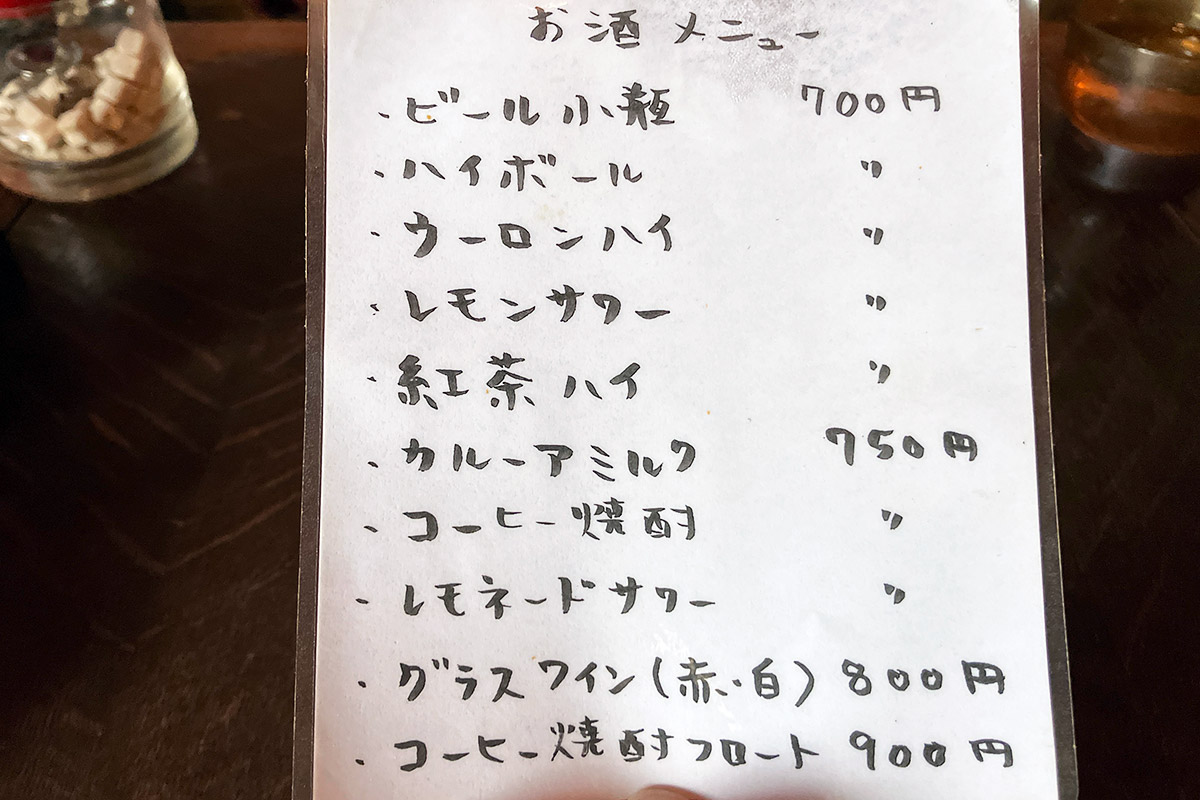 お酒メニュー
・ビール小瓶 700円
・ハイボール 〃
・ウーロンハイ 〃
・レモンサワー 〃
・紅茶ハイ 〃
・カルーアミルク 750円
・コーヒー焼酎 〃
・レモネードサワー 〃
・グラスワイン(赤・白) 800円
・コーヒー焼酎フロート 900円